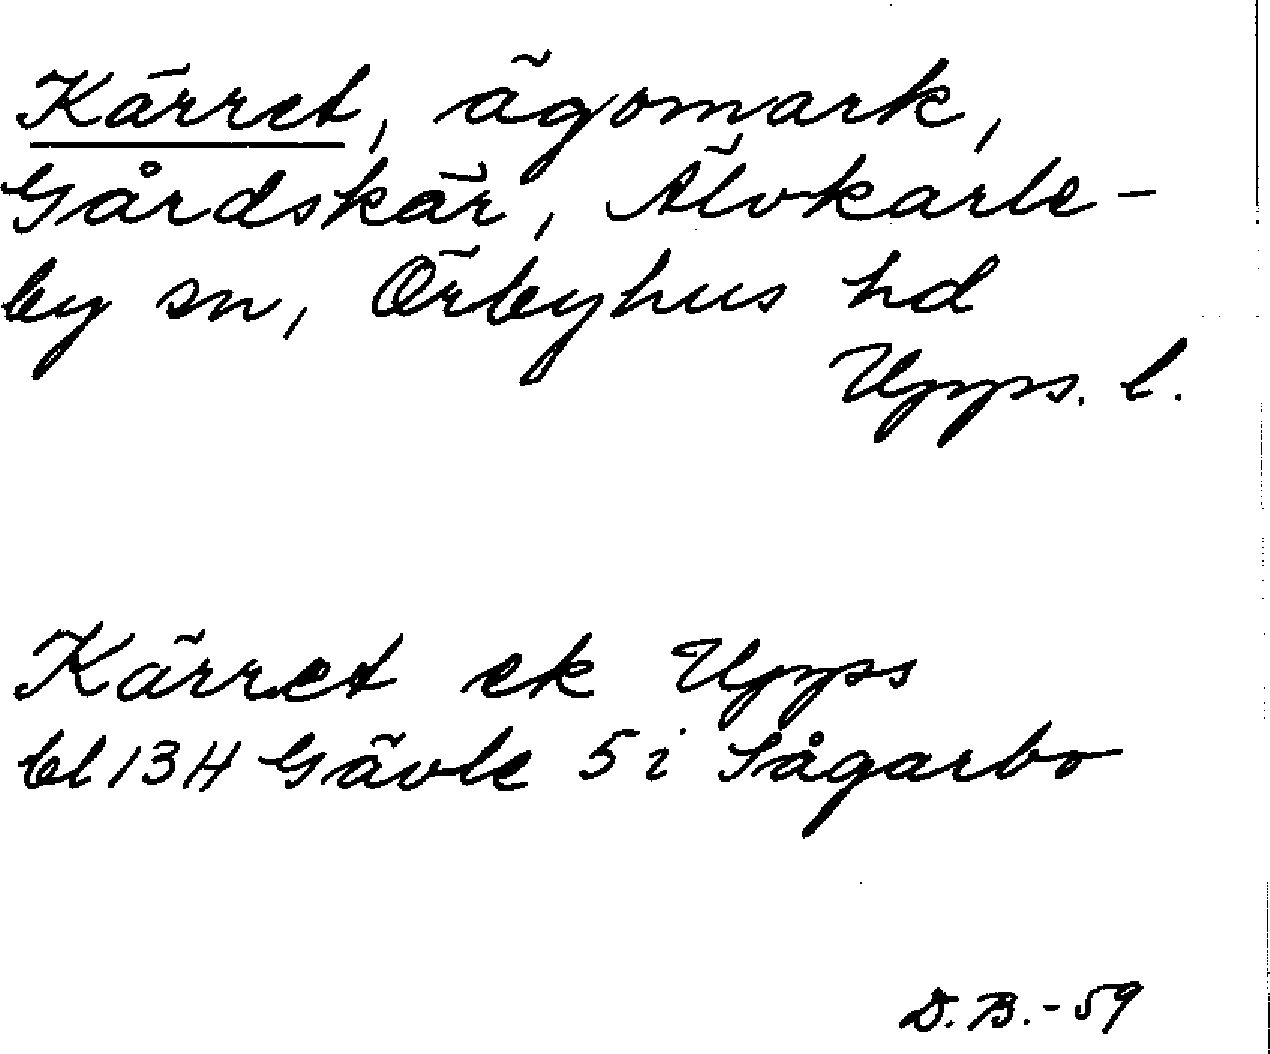 Kärret, ägomark,
Gårdskär, Älvkarle-
by sn, Örbyhus hd
Upps. l.
Kärret ek Upps
bl 13H Gävle 5 i Sågarbo
D.B.-59